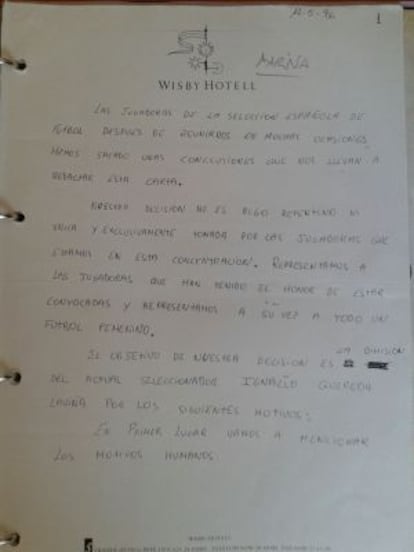 12-5-96 1
MARINA
WISBY HOTELL
LAS JUGADORAS DE LA SELECCIÓN ESPAÑOLA DE
FUTBOL DESPUES DE REUNIRNOS EN MUCHAS OCASIONES,
HEMOS SACADO UNAS CONCLUSIONES QUE NOS LLEVAN A
REDACTAR ESTA CARTA.
NUESTRA DECISION NO ES ALGO REPENTINO NI
UNICA Y EXCLUSIVAMENTE TOMADA POR LAS JUGADORAS QUE
ESTAMOS EN ESTA CONCENTRACION. REPRESENTAMOS A
LAS JUGADORAS QUE HAN TENIDO EL HONOR DE ESTAR
CONVOCADAS Y REPRESENTAMOS A SU VEZ A TODO UN
FÚTBOL FEMENINO.
EL OBJETIVO DE NUESTRA DECISION ES LA DIMISION
DEL ACTUAL SELECCIONADOR IGNACIO QUEREDA
LAVIÑA POR LOS SIGUIENTES MOTIVOS:
EN PRIMER LUGAR VAMOS A MENCIONAR
LOS MOTIVOS HUMANOS.
WISBY HOTELL